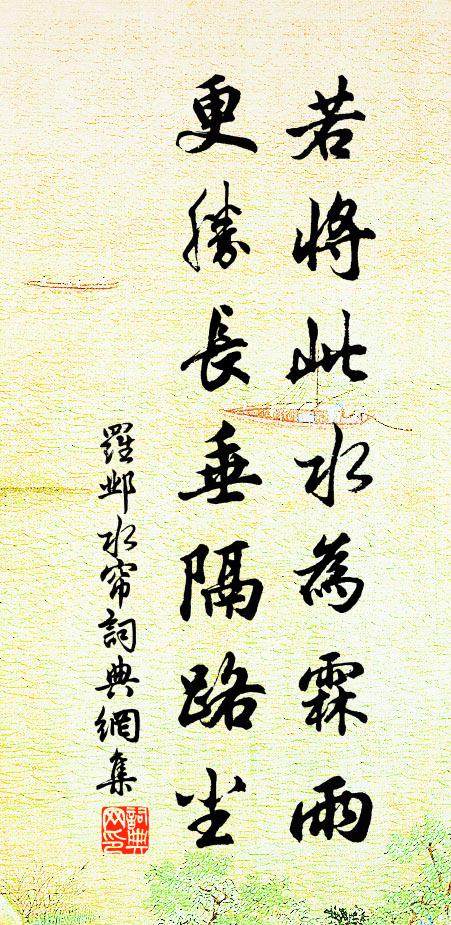 若將此水為霖雨
更勝長垂隔路尘
羅邺水帘詞典網集
詞典网印